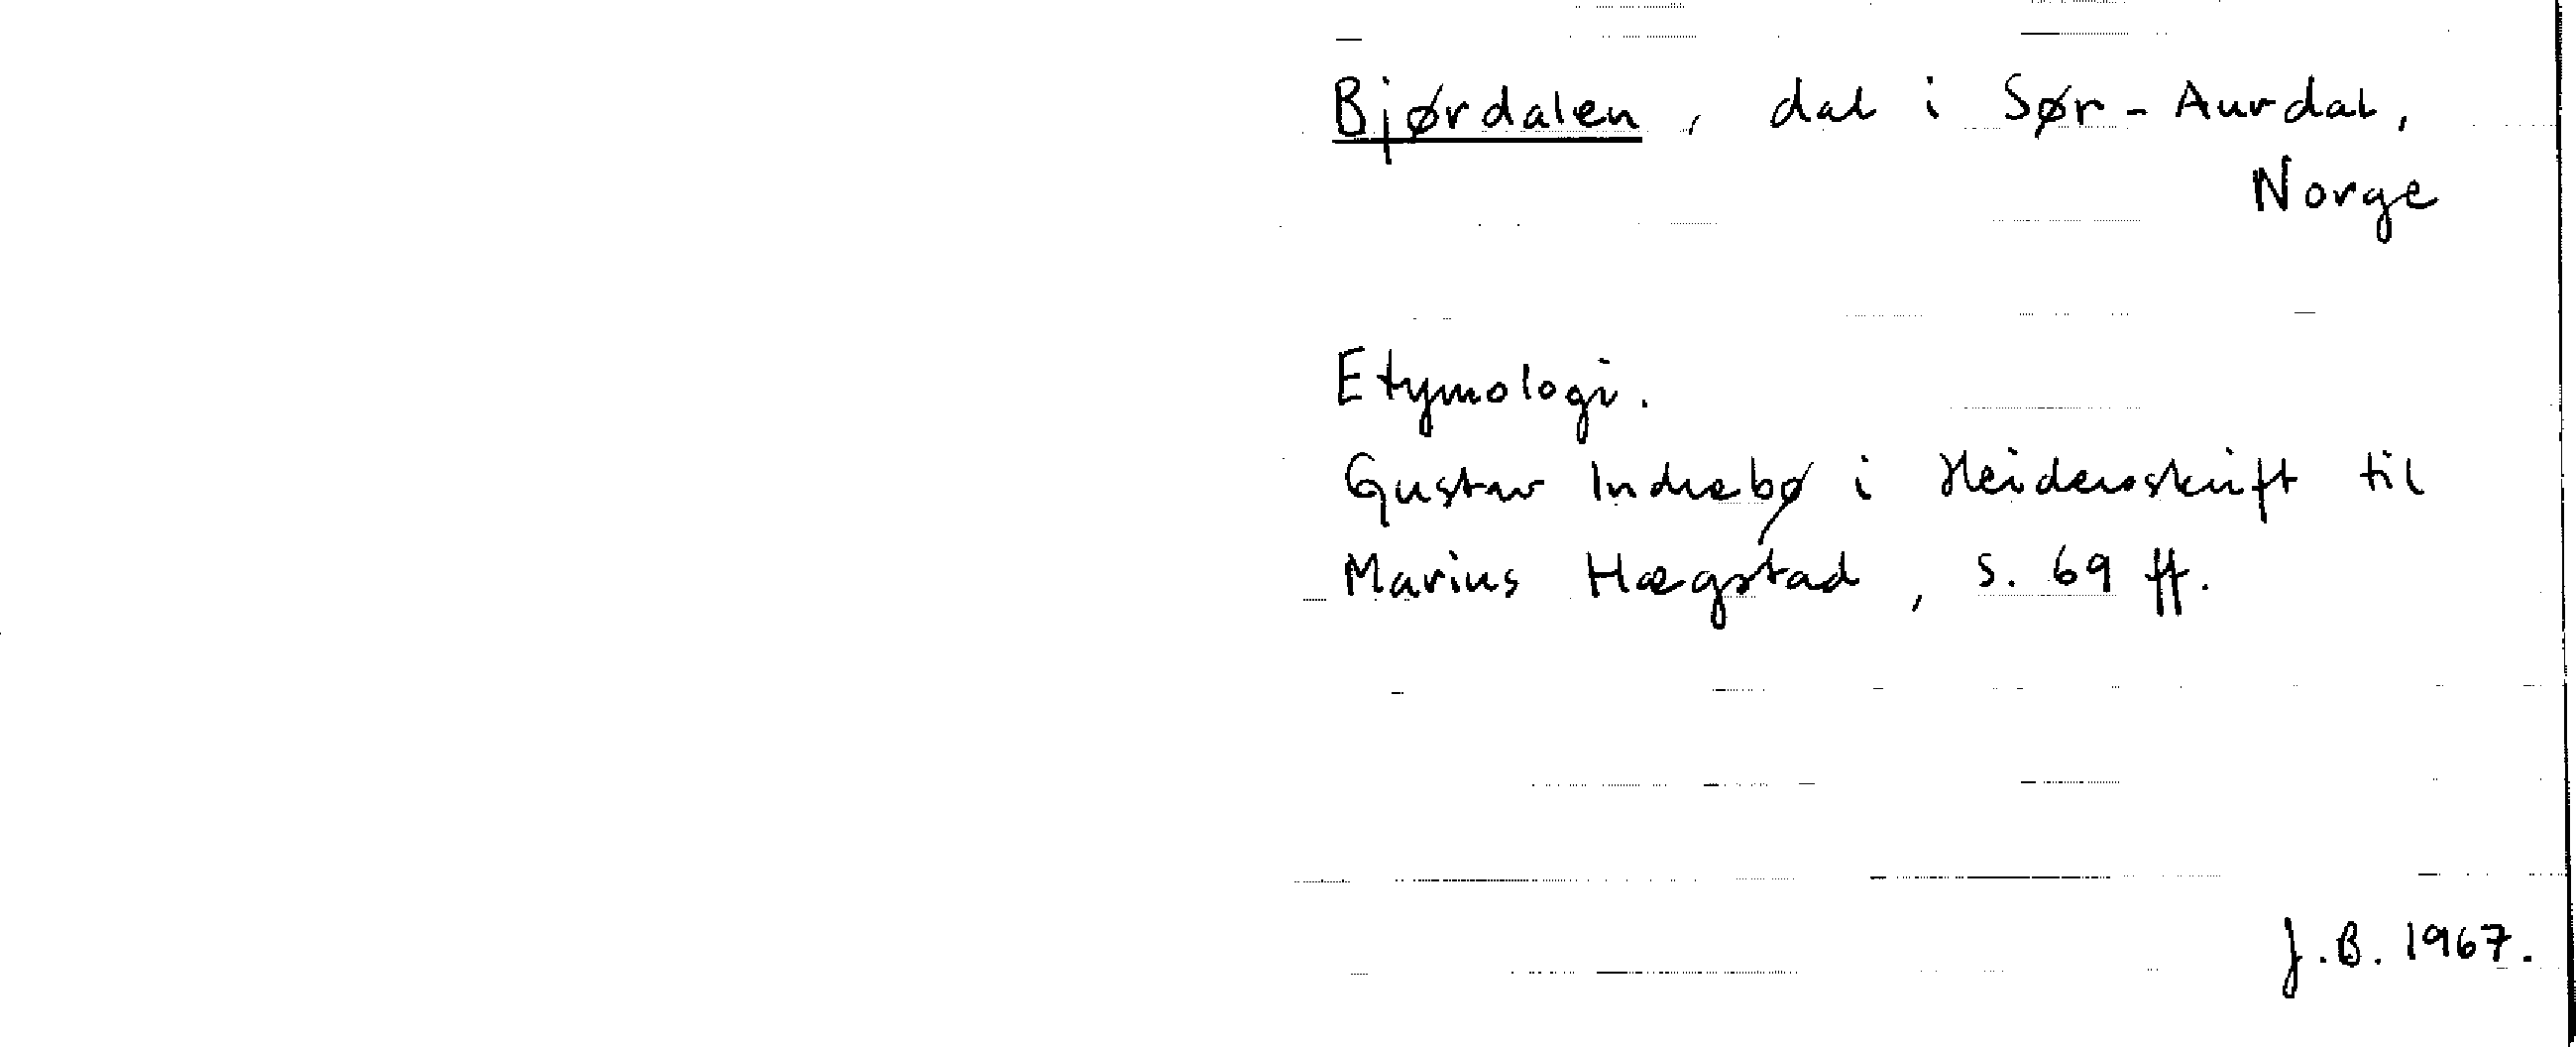 Bjørdalen, dal i Sør-Aurdal,
Norge
Etymologi.
Gustav Indrebø i Heidersskrift til
Marius Hægstad, s. 69 ff.
J.B. 1967.